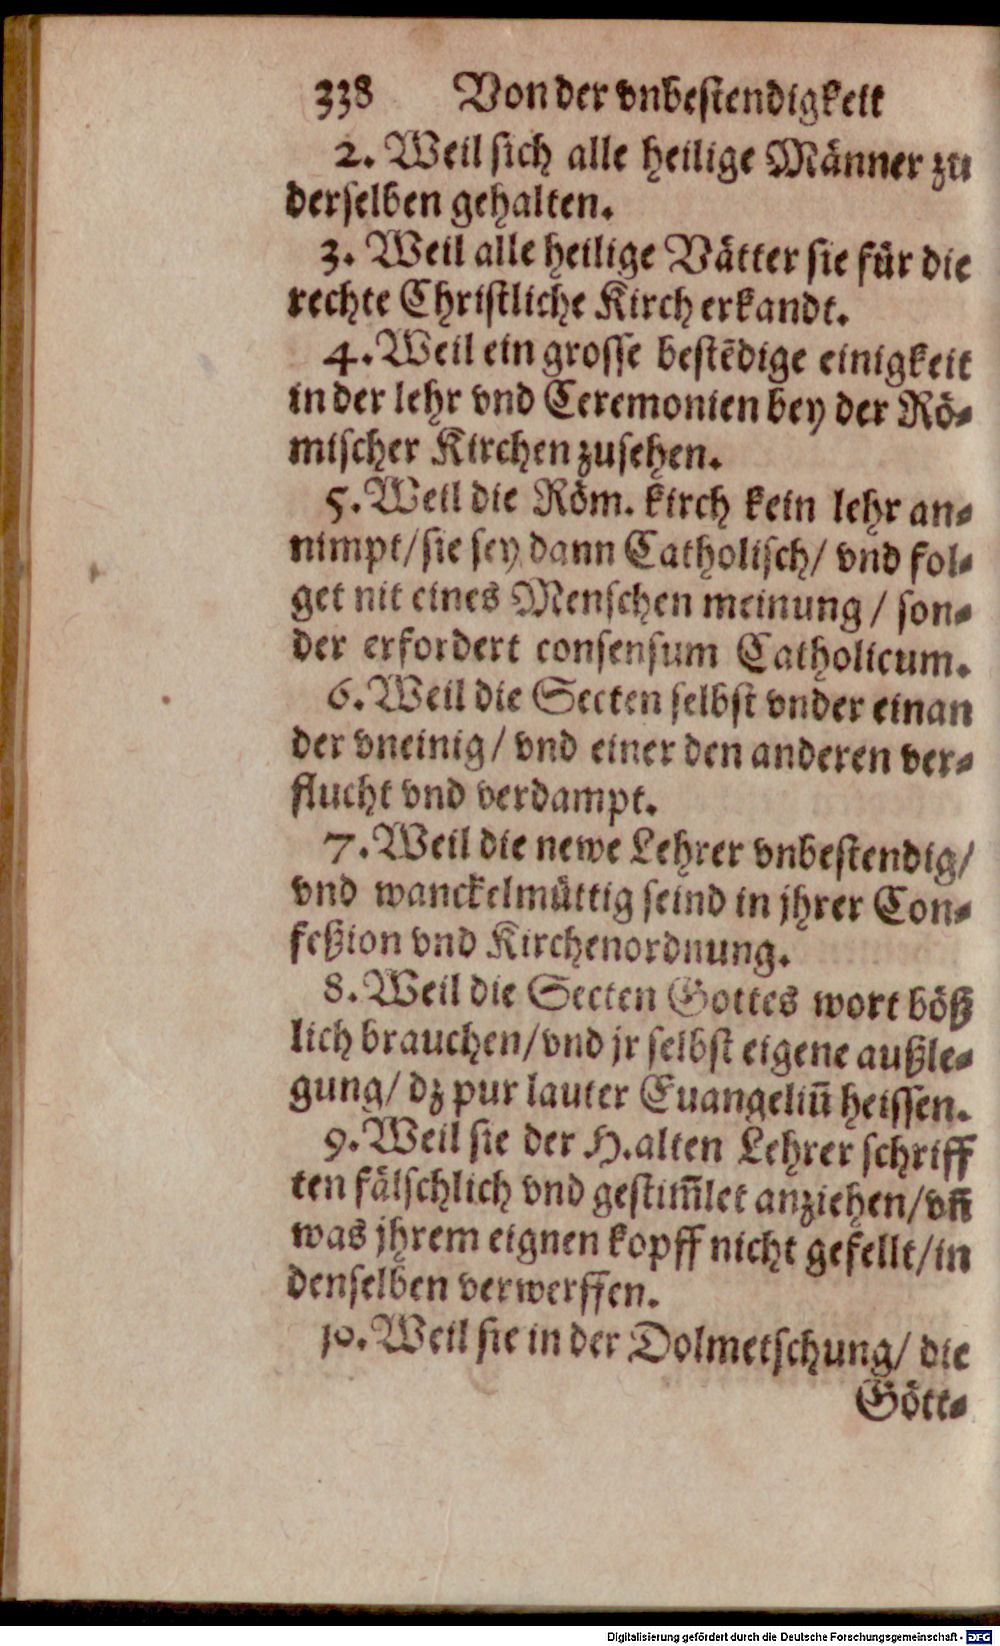 338 Von der vnbestendigkeit
2. Weil sich alle heilige Männer zu
derselben gehalten.
3. Weil alle heilige Vätter sie für die
rechte Christliche Kirch erkandt.
4. Weil ein grosse bestẽdige einigkeit
in der lehr vnd Ceremonien bey der Rö-
mischer Kirchen zusehen.
5. Weil die Röm. kirch kein lehr an-
nimpt/ sie sey dann Catholisch/ vnd fol-
get nit eines Menschen meinung/ son-
der erfordert consensum Catholicum.
6. Weil die Secten selbst vnder einan
der vneinig/ vnd einer den anderen ver-
flucht vnd verdampt.
7. Weil die newe Lehrer vnbestendig/
vnd wanckelmüttig seind in jhrer Con-
feßion vnd Kirchenordnung.
8. Weil die Secten Gottes wort böß
lich brauchen/ vnd jr selbst eigene außle-
gung/ dz pur lauter Euangeliū heissen.
9. Weil sie der H. alten Lehrer schriff
ten fälschlich vnd gestim̃let anziehen/ vñ
was jhrem eignen kopff nicht gefellt/ in
denselben verwerffen.
10. Weil sie in der Dolmetschung/ die
Gött-
Digitalisierung gefördert durch die Deutsche Forschungsgemeinschaft - DFG